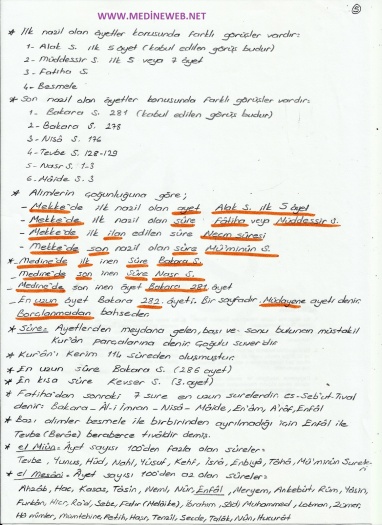 www.MEDİNEWEB.NET
5
* İlk nazil olan âyetler konusunda farklı görüşler vardır:
1- Alak S. ilk 5 âyet (kabul edilen görüş budur)
2- Müddessir S. ilk 5 veya 7 âyet
3- Fatiha S.
4- Besmele
* Son nazil olan âyetler konusunda farklı görüşler vardır:
1- Bakara S. 281 (kabul edilen görüş budur)
2- Bakara S. 278
3- Nisâ S. 176
4- Tevbe S. 128-129
5- Nasr S. 1-3
6- Mâide S. 3
* Alimlerin çoğunluğuna göre;
- Mekke'de ilk nazil olan ayet Alak S. ilk 5 âyet
- Mekke'de ilk nazil olan sûre Fâtiha veya Müddessir S.
- Mekke'de ilk ilan edilen sûre Necm sûresi
- Mekke'de son nazil olan sûre Mü'minûn S.
* Medine'de ilk inen Sûre Bakara S.
- Medine'de son inen Sûre Nasr S.
- Medine'de son inen âyet Bakara 281. âyet
- En uzun âyet Bakara 282. âyeti. Bir sayfadır. Müdayene ayeti denir.
Borçlanmadan bahseder
* Sûre: Ayetlerden meydana gelen, başı ve sonu bulunan müstakil
Kur'an parçalarına denir. Çoğulu suver'dir.
* Kur'ân'ı Kerim 114 sûreden oluşmuştur.
* En uzun sûre Bakara S. (286 ayet)
* En kısa sûre Kevser S. (3. ayet)
* Fatiha'dan sonraki 7 sure en uzun surelerdir. es-Seb'ut-Tıval
denir: Bakara - Âl-i İmran - Nisâ - Mâide, En'âm, A'râf, Enfâl
* bazı alimler besmele ile birbirinden ayrılmadığı için Enfâl ile
Tevbe (Berâe) beraberce tıvâldir demiş.
* el Miûn: Âyet sayısı 100'den fazla olan sûreler:
Tevbe, Yunus, Hûd, Nahl, Yûsuf, Kehf, İsrâ, Enbiyâ, Tâhâ, Mü'minûn Sureleri
* el Mesânî: Âyet sayısı 100'den az olan sûreler:
Ahzâb, Hac, Kasas, Tâsîn, Neml, Nûr, Enfâl, Meryem, Ankebût, Rûm, Yâsîn,
Furkân, Hicr, Ra'd, Sebe, Fatır (Melâike), İbrahim, Sâd, Muhammed, Lokman, Zümer,
Hâ mimler, Mümtehine, Fetih, Haşr, Tenzîl, Secde, Talâk, Nûn, Hucurât